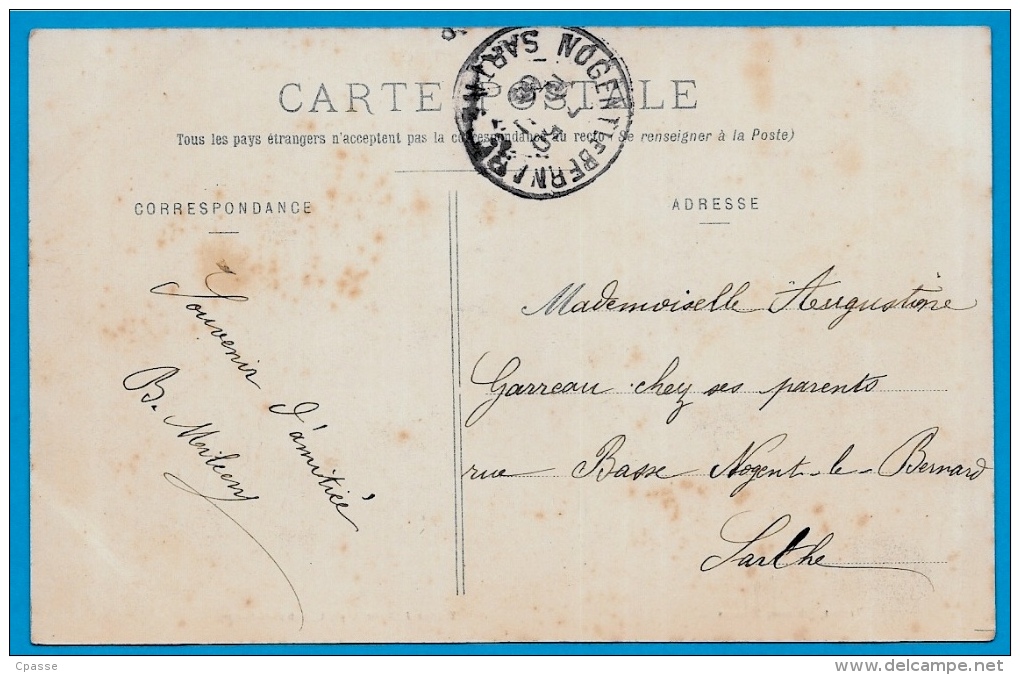 CARTE POSTALE
Tous les pays étrangers n'acceptent pas la correspondance au recto (Se renseigner à la Poste)
NOGENT LE BERNARD SARTHE
CORRESPONDANCE
Souvenir d'amitiée
B.
ADRESSE
Mademoiselle Augustine
Garreau chez ses parents
rue Basse Nogent-le-Bernard
Sarthe
Cpasse
www.delcampe.net